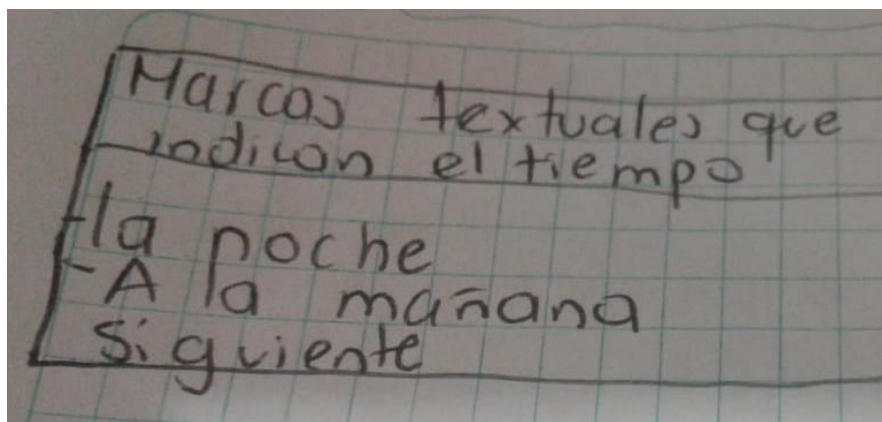 Marcas textuales que
indican el tiempo
-la noche
-A la mañana
siguiente